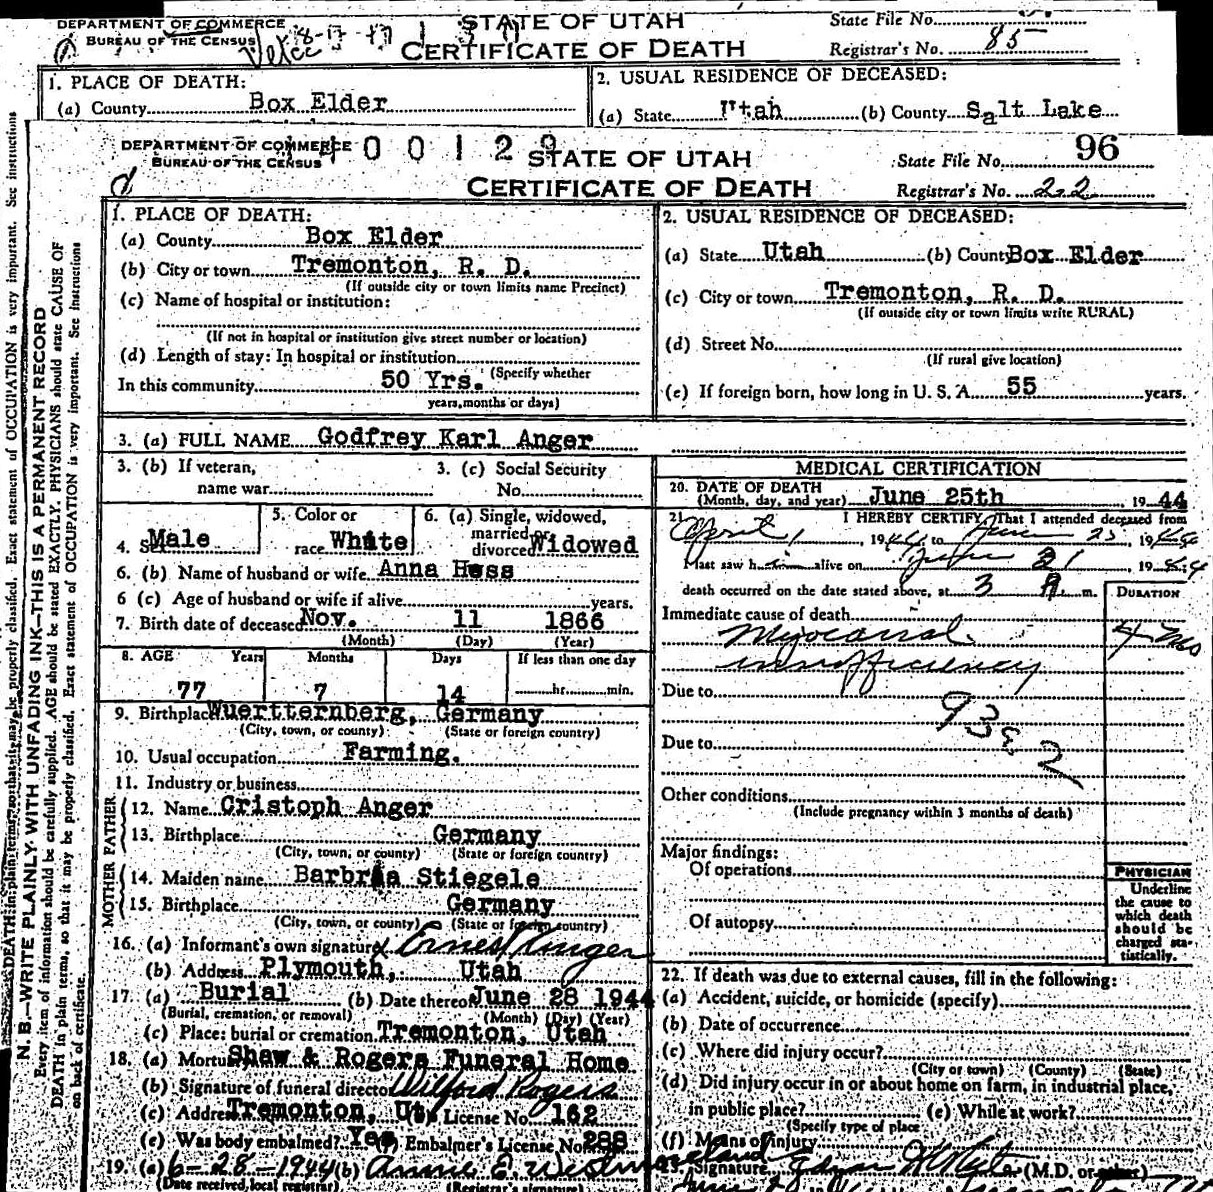 DEPARTMENT OF COMMERCE
BUREAU OF THE CENSUS
STATE OF UTAH
CERTIFICATE OF DEATH
State File No.
Registrar's No. 85
1. PLACE OF DEATH:
(a) County Box Elder
2. USUAL RESIDENCE OF DECEASED:
(a) State Utah (b) County Salt Lake
DEPARTMENT OF COMMERCE
BUREAU OF THE CENSUS
0 0 1 2 9
STATE OF UTAH
CERTIFICATE OF DEATH
State File No. 96
Registrar's No. 22
1. PLACE OF DEATH:
(a) County Box Elder
(b) City or town Tremonton, R. D.
(If outside city or town limits name Precinct)
(c) Name of hospital or institution:
(If not in hospital or institution give street number or location)
(d) Length of stay: In hospital or institution
(Specify whether
In this community 50 Yrs.
years, months or days)
2. USUAL RESIDENCE OF DECEASED:
(a) State Utah (b) County Box Elder
(c) City or town Tremonton, R. D.
(If outside city or town limits write RURAL)
(d) Street No.
(If rural give location)
(e) If foreign born, how long in U. S. A. 55 years.
3. (a) FULL NAME Godfrey Karl Anger
3. (b) If veteran,
name war
3. (c) Social Security
No.
4. Sex Male
5. Color or
race White
6. (a) Single, widowed,
married or
divorced Widowed
6. (b) Name of husband or wife Anna Hess
6 (c) Age of husband or wife if alive years.
7. Birth date of deceased Nov. 11 1866
(Month) (Day) (Year)
8. AGE Years Months Days If less than one day
77 7 14 hr. min.
9. Birthplace Wuertternberg, Germany
(City, town, or county) (State or foreign country)
10. Usual occupation Farming.
11. Industry or business
FATHER
12. Name Cristoph Anger
13. Birthplace Germany
(City, town, or county) (State or foreign country)
MOTHER
14. Maiden name Barbria Stiegele
15. Birthplace Germany
(City, town, or county) (State or foreign country)
16. (a) Informant's own signature x Ernest Anger
(b) Address Plymouth, Utah
17. (a) Burial (b) Date thereof June 28 1944
(Burial, cremation, or removal) (Month) (Day) (Year)
(c) Place: burial or cremation Tremonton, Utah
18. (a) Mortuary Shaw & Rogers Funeral Home
(b) Signature of funeral director Wilford Rogers
(c) Address Tremonton, Ut. License No. 162
(e) Was body embalmed? Yes Embalmer's License No. 288
19. (a) 6-28-1944 (b) Annie E. Westmoreland
(Date received, local registrar) (Registrar's signature)
MEDICAL CERTIFICATION
20. DATE OF DEATH
(Month, day, and year) June 25th 1944
21. I HEREBY CERTIFY, That I attended deceased from
April 1, 1944 to June 25 1944
I last saw him alive on June 21, 1944
death occurred on the date stated above, at 3 P. m.
DURATION
Immediate cause of death
Myocardial 4 mo
insufficiency
Due to
93 2
Due to
Other conditions
(Include pregnancy within 3 months of death)
Major findings:
Of operations
Of autopsy
PHYSICIAN
Underline
the cause to
which death
should be
charged sta-
tistically.
22. If death was due to external causes, fill in the following:
(a) Accident, suicide, or homicide (specify)
(b) Date of occurrence
(c) Where did injury occur?
(City or town) (County) (State)
(d) Did injury occur in or about home on farm, in industrial place,
in public place? (e) While at work?
(Specify type of place
(f) Means of injury
23. Signature (M.D. or other)
N. B.—WRITE PLAINLY WITH UNFADING INK—THIS IS A PERMANENT RECORD
Every item of information should be carefully supplied. AGE should be stated EXACTLY. PHYSICIANS should state CAUSE OF
DEATH in plain terms, so that it may be properly classified. Exact statement of OCCUPATION is very important. See instructions
on back of certificate.
DEATH in plain terms, so that it may be properly classified. Exact statement of OCCUPATION is very important. See instructions